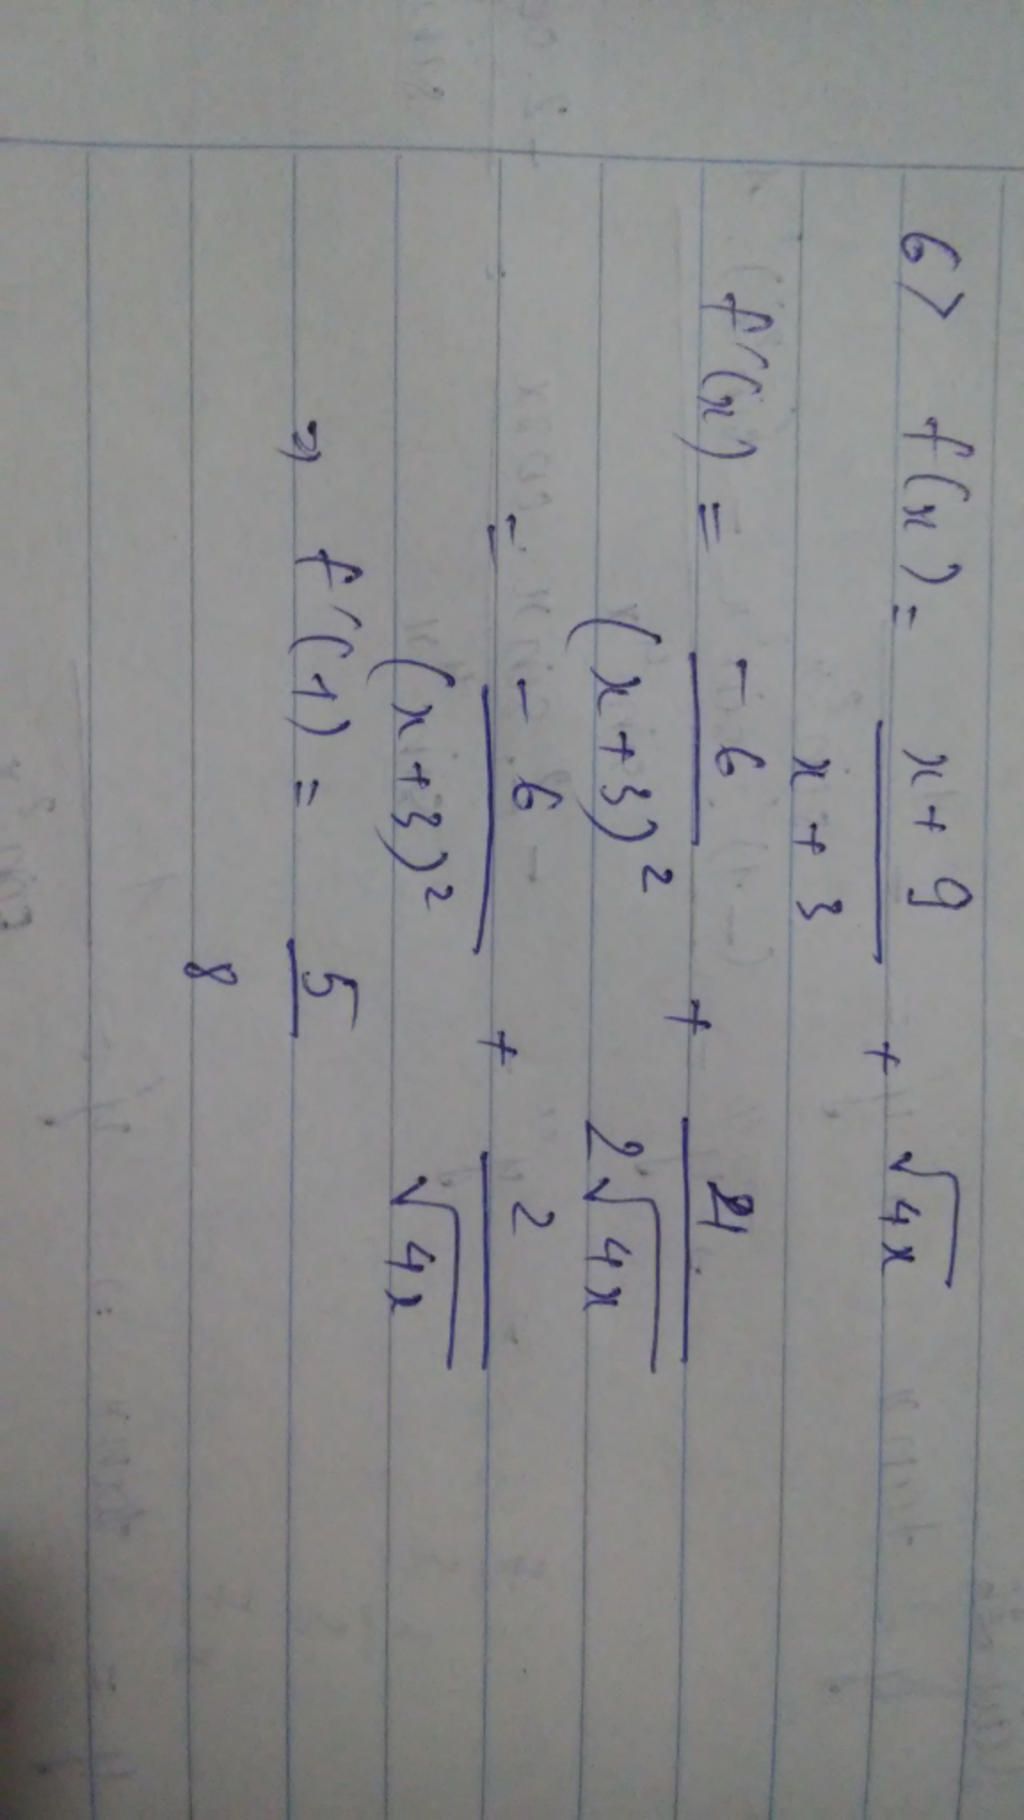 6> f(x) = \frac{x+9}{x+3} + \sqrt{4x}
f'(x) = \frac{-6}{(x+3)^2} + \frac{4}{2\sqrt{4x}}
= \frac{-6}{(x+3)^2} + \frac{2}{\sqrt{4x}}
=> f'(1) = \frac{5}{8}